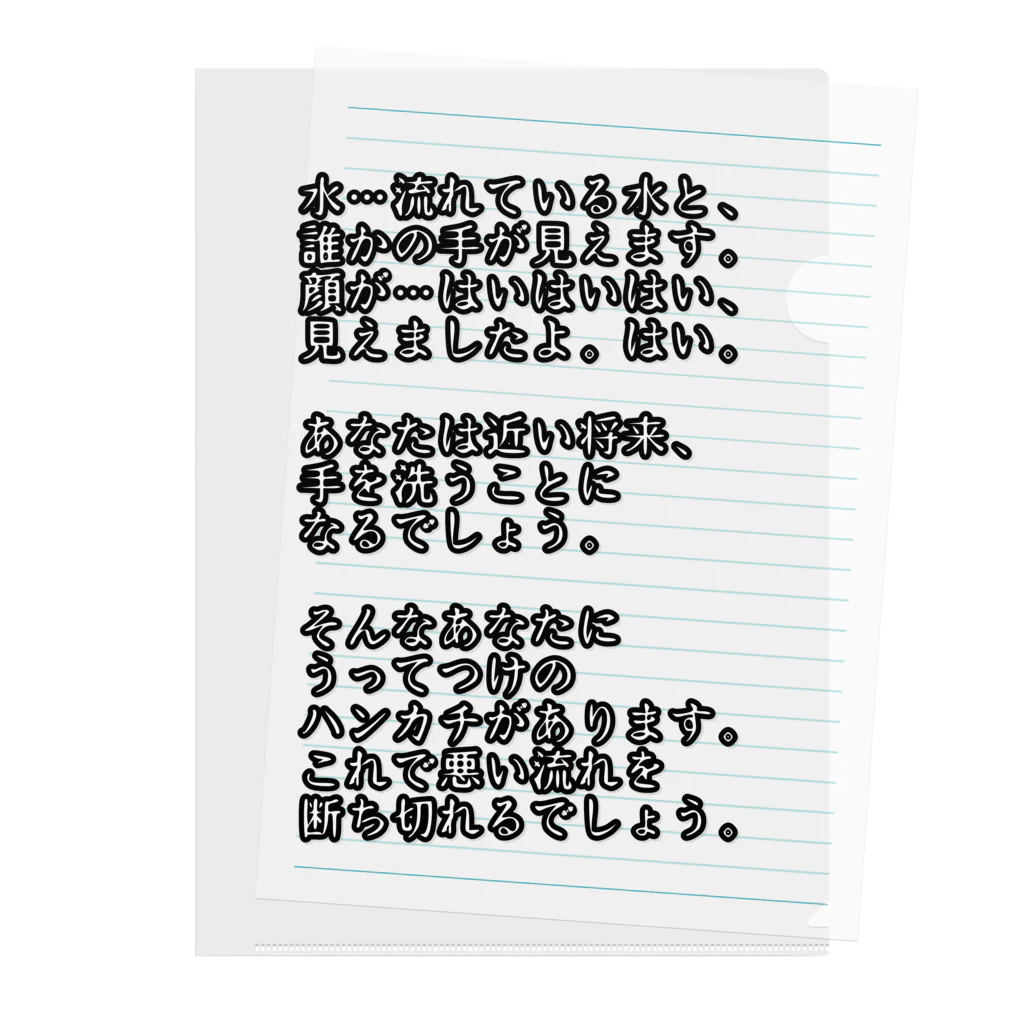 水…流れている水と、
誰かの手が見えます。
顔が…はいはいはい、
見えましたよ。はい。
あなたは近い将来、
手を洗うことに
なるでしょう。
そんなあなたに
うってつけの
ハンカチがあります。
これで悪い流れを
断ち切れるでしょう。